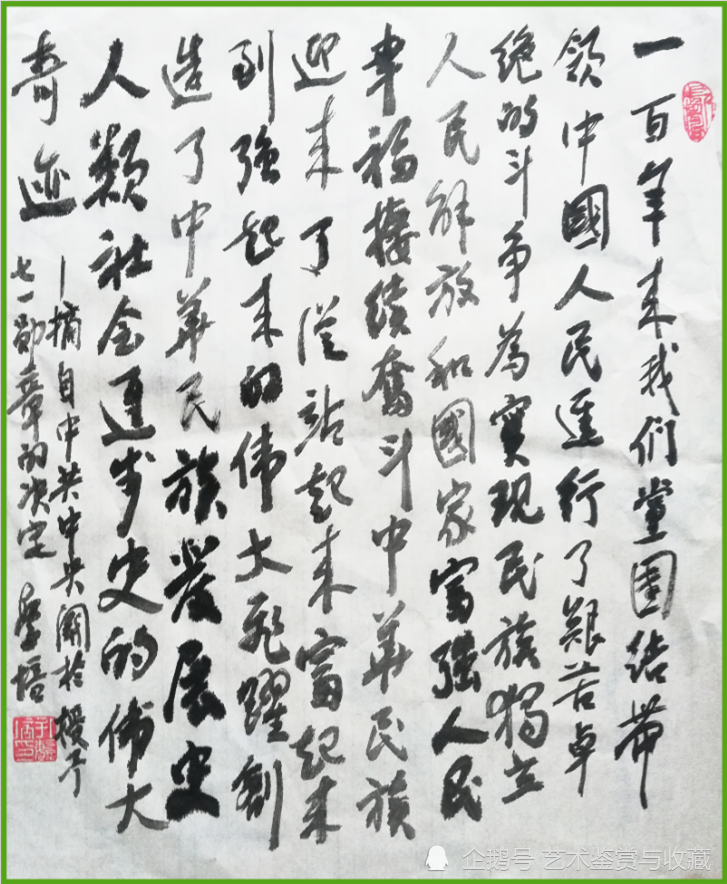 一百年来我们党團结带
领中國人民進行了艰苦卓
绝的斗争為實现民族獨立
人民解放和國家富强人民
幸福接续奮斗中華民族
迎来了從站起来富起来
到强起来的伟大飛躍創
造了中華民族發展史
人類社会進步史的偉大
奇迹
—摘自中共中央關於授予
七一勛章的决定
企鹅号 艺术鉴赏与收藏